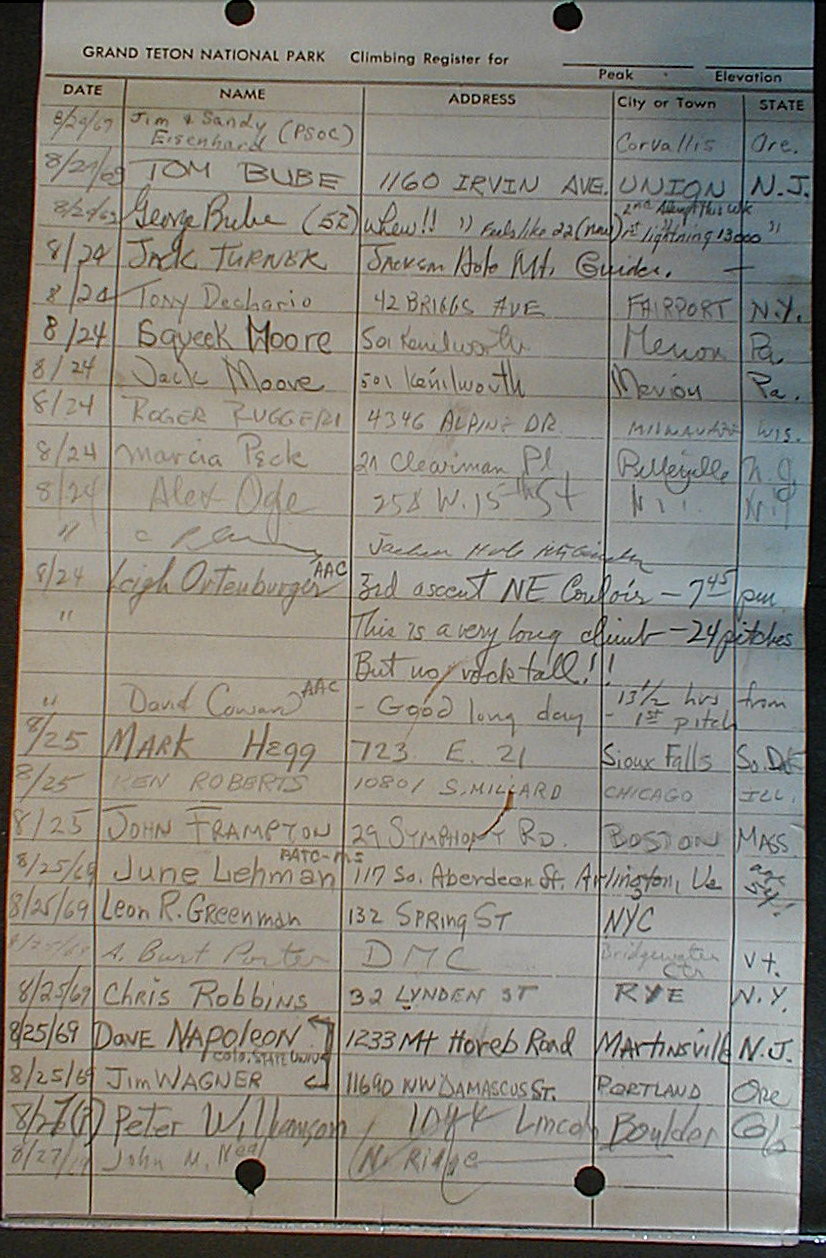 GRAND TETON NATIONAL PARK Climbing Register for
Peak Elevation
DATE NAME ADDRESS City or Town STATE
8/24/69 Jim & Sandy Eisenhard (PSOC) Corvallis Ore.
8/24/69 TOM BUBE 1160 IRVIN AVE. UNION N.J.
George Bube (52) Whew!! "Feels like 22 (now) 1st lightning 13000"
8/24 Jack TURNER Jackson Hole Mt. Guides. —
8/24 Tony Dechario 42 BRIGGS AVE FAIRPORT N.Y.
8/24 Squeek Moore 501 Kenilworth Merion Pa.
8/24 Jack Moore 501 Kenilworth Merion Pa.
8/24 ROGER RUGGERI 4346 ALPINE DR. MILWAUKEE WIS.
8/24 Marcia Peck 21 Clearman Pl Belleville N.J.
8/24 Alex 258 W. 15th St
" Jackson Hole
8/24 Leigh Ortenburger AAC 3rd ascent NE Couloir — 7 45 pm
" This is a very long climb — 24 pitches
But no rockfall!!
" David Coward AAC - Good long day - 13 1/2 hrs from 1st pitch
8/25 MARK Hegg 723 E. 21 Sioux Falls So. Dak
8/25 KEN ROBERTS 10801 S. MILLARD CHICAGO ILL.
8/25 JOHN FRAMPTON 29 SYMPHONY RD. BOSTON MASS.
8/25/69 June Lehman PATC-MS 117 So. Aberdeen St. Arlington, Va age 54!
8/25/69 Leon R. Greenman 132 SPRING ST NYC
8/25/69 A. Burt Porter DMC Bridgewater Ctr Vt.
8/25/69 CHRIS ROBBINS 32 LYNDEN ST RYE N.Y.
8/25/69 DAVE NAPOLEON 1233 Mt Horeb Road Martinsville N.J.
COLO. STATE UNIV.
8/25/69 JIM WAGNER 11690 NW DAMASCUS ST. PORTLAND Ore
Peter Williamson 1044 Lincoln Boulder Colo
8/27/69 John M. (N. Ridge